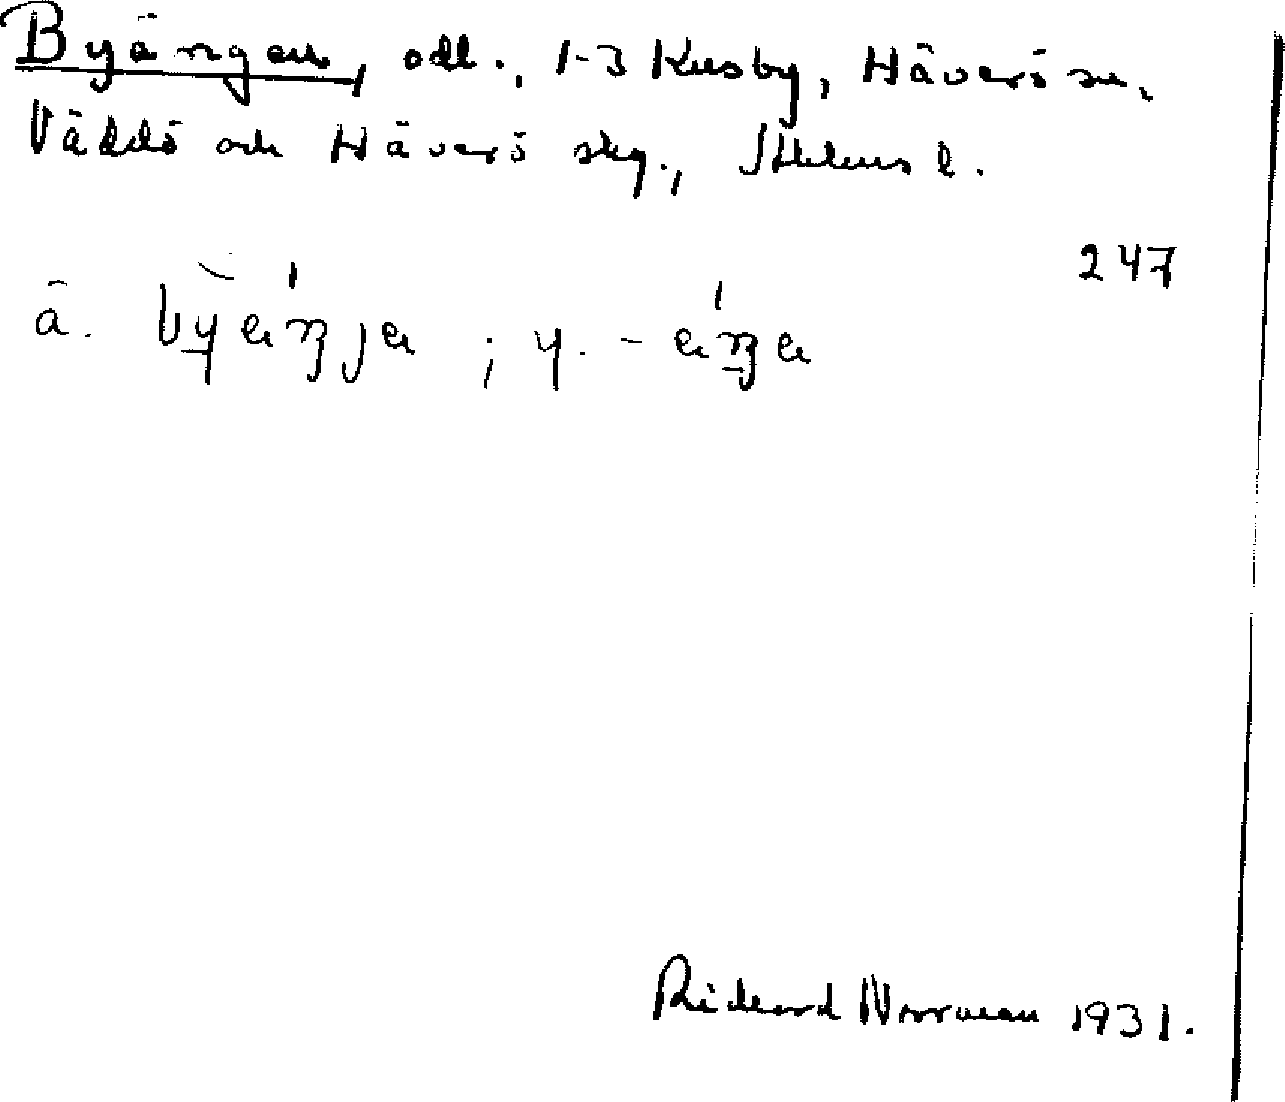 Byängen, odl., 1-3 Kusby, Häverö sn,
Väddö och Häverö skg., Sthlms l.
247
ä.
; y. -
Richard Norrman 1931.